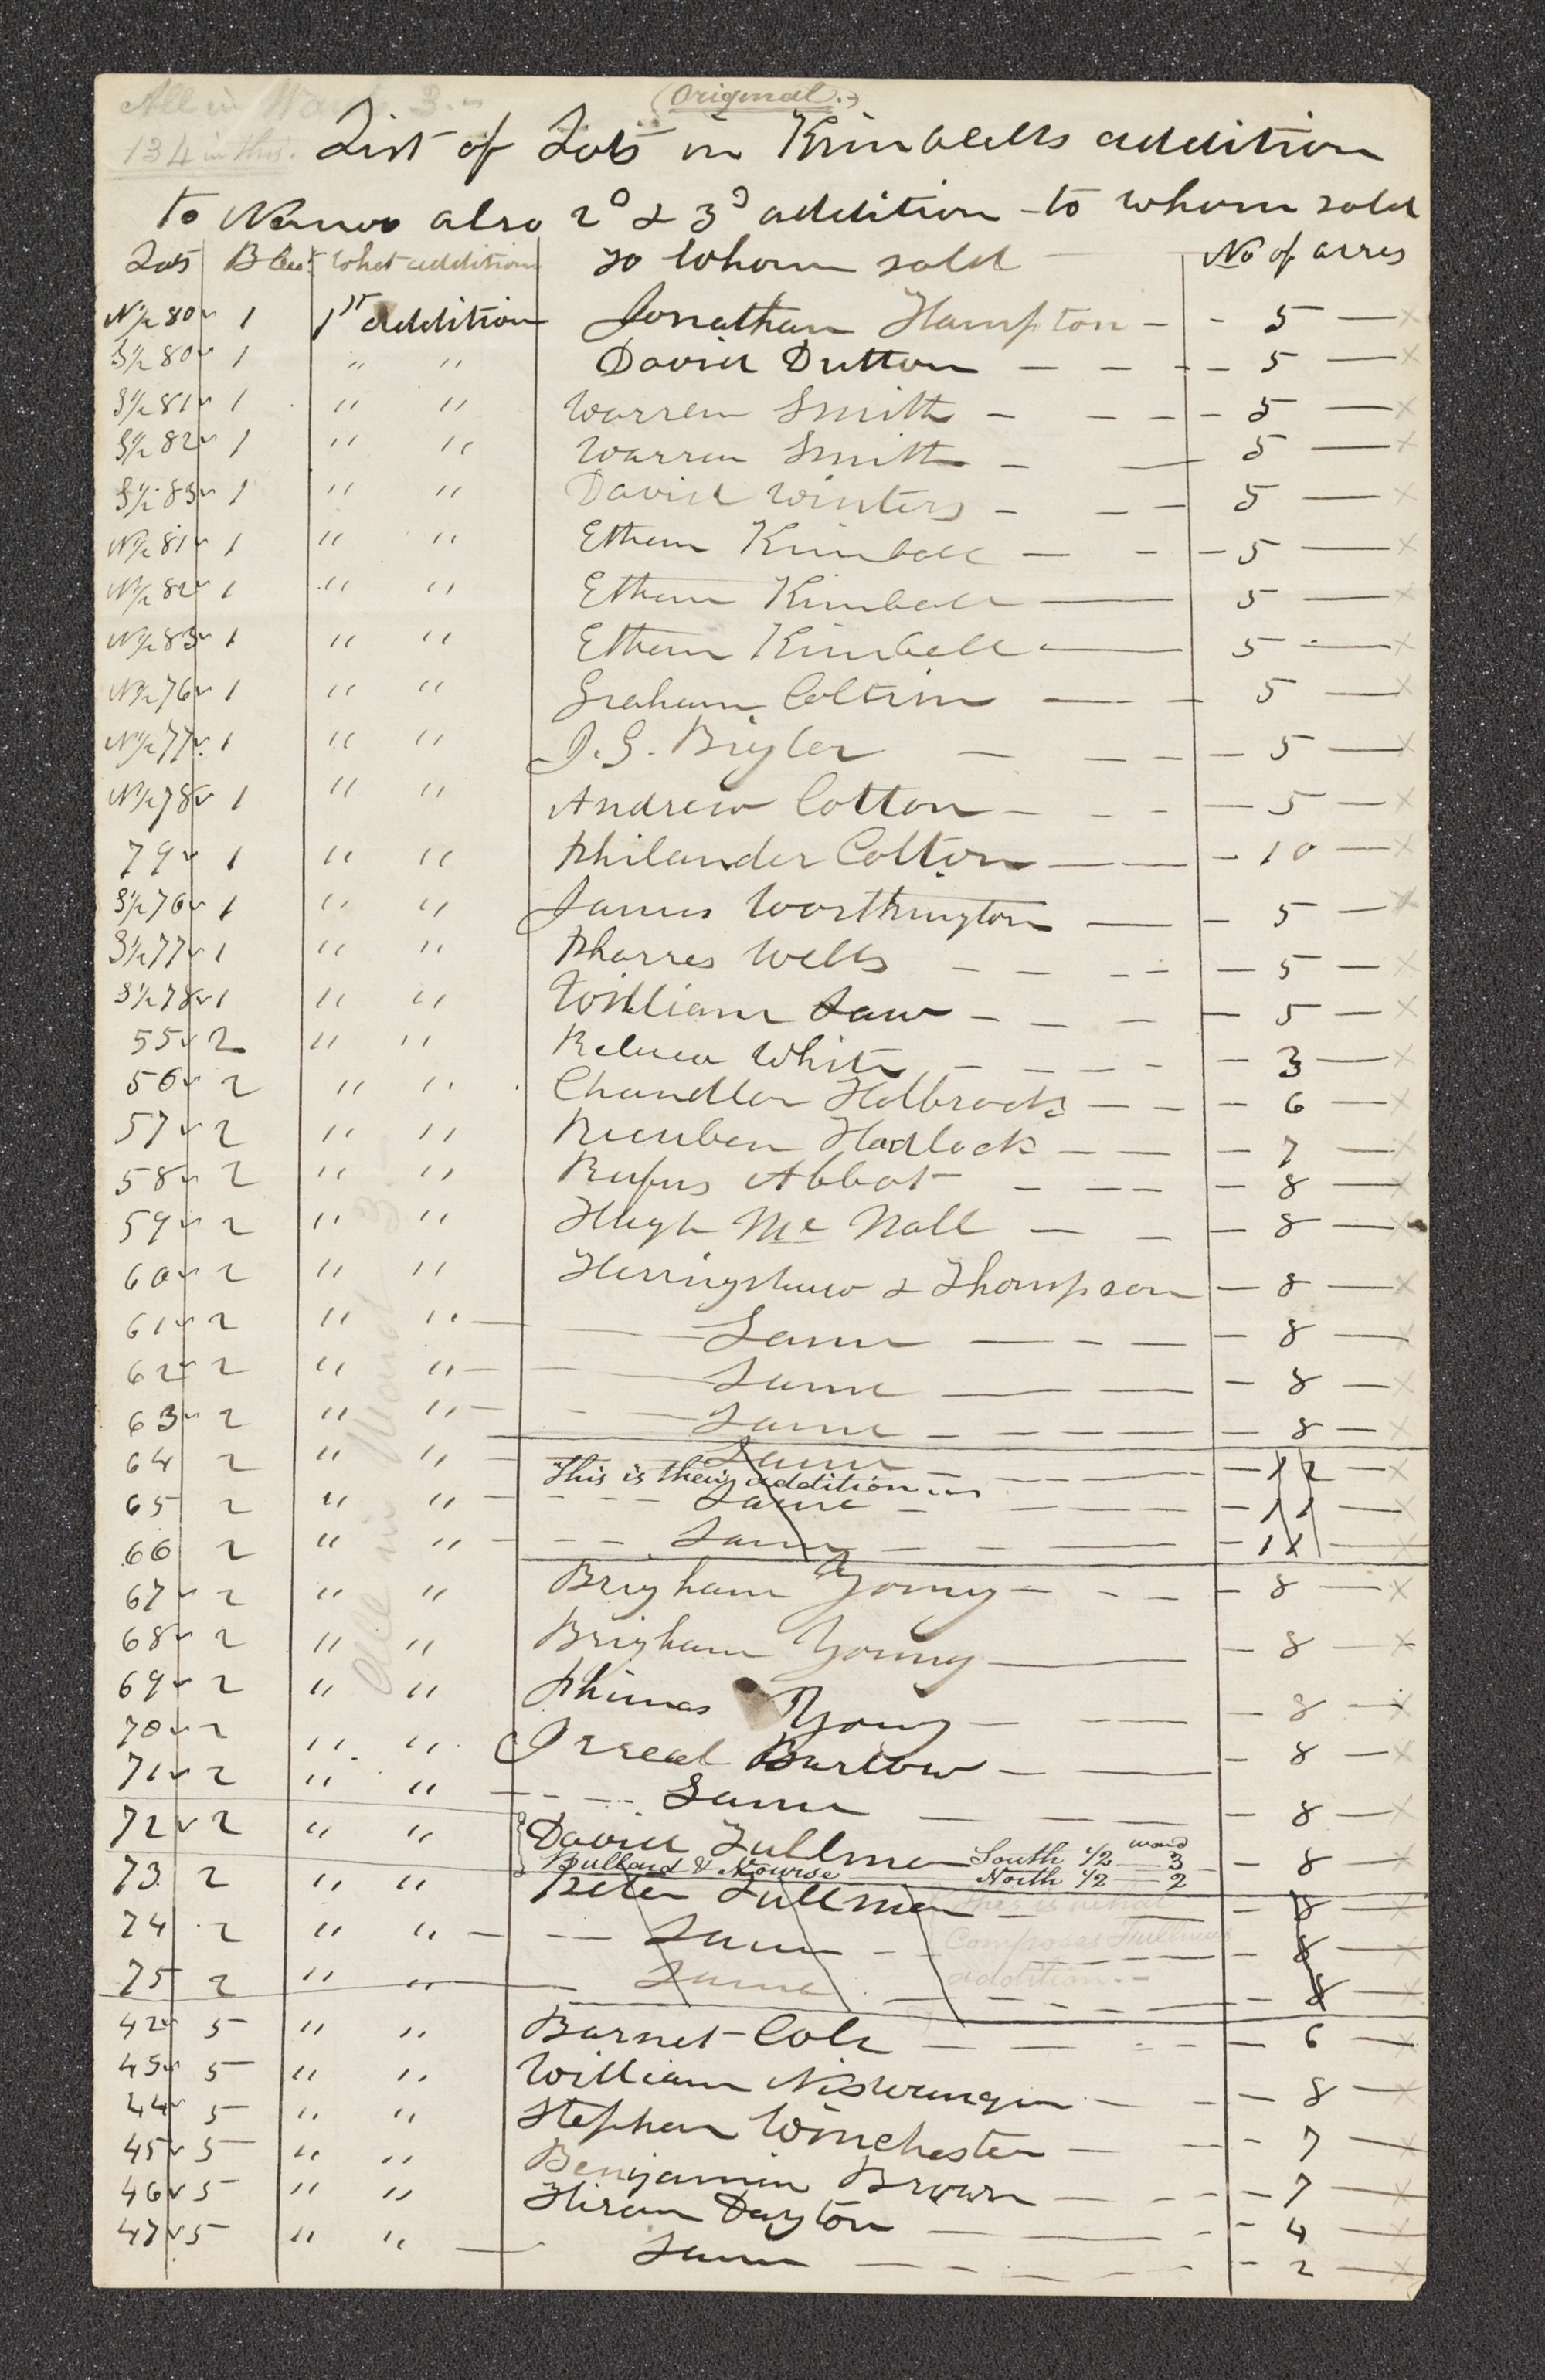 All in Ward 3.
(Original.)
134 in this.
List of Lots in Kimballs addition
to Nauvoo also 2D & 3D addition to whom sold
Lots Block What addition To Whom sold No of acres
N1/2 80 1 1st addition Jonathan Hampton - - 5 — x
S1/2 80 1 " " David Dutton — — — - 5 — x
S1/2 81 1 " " Warren Smith — — — - 5 — x
S1/2 82 1 " " Warren Smith — — 5 — x
S1/2 83 1 " " David Winters — — — 5 — x
N1/2 81 1 " " Ethan Kimball — - - 5 — x
N1/2 82 1 " " Ethan Kimball — 5 — x
N1/2 83 1 " " Ethan Kimball — 5 — x
N1/2 76 1 " " Graham Coltrin — - 5 — x
N1/2 77 1 " " J. G. Bigler — — — - 5 — x
N1/2 78 1 " " Andrew Colton — - - — 5 — x
79 1 " " Philander Colton — — - 10 — x
S1/2 76 1 " " James Worthington — - 5 — x
S1/2 77 1 " " Pharres Wells — — — - 5 — x
S1/2 78 1 " " William Law — — — - 5 — x
55 2 " " Rebecca White — — — - 3 — x
56 2 " " Chandler Holbrook — — - 6 — x
57 2 " " Rueuben Hadlock — — - 7 — x
58 2 " " Rufus Abbot — — — - 8 — x
59 2 " " Hugh Mc Nall — — - 8 — x
60 2 " " Herringshaw & Thompson - 8 — x
61 2 " " — Same — — — - 8 — x
62 2 " " — Same — — — - 8 — x
63 2 " " — Same — — — - 8 — x
64 2 " " — Same — — — 12 — x
This is their addition
65 2 " " - - - Same — — — 11 — x
66 2 " " - - Same — — — 11 — x
67 2 " " Brigham Young — - - - 8 — x
68 2 " " Brigham Young — - 8 — x
69 2 " " Phineas Young — — - 8 — x
70 2 " " Isreal Barlow — — - 8 — x
71 2 " " - - - Same — — — - 8 — x
72 2 " " David Fullmer South 1/2 ward 3 - 8 — x
Bullard & Nourse North 1/2 — 2
73 2 " " Peter Fullmer — — - 8 — x
this is what
74 2 " " — — Same — - — - 8 — x
composes Fullmers
75 2 " " — Same — — — - 8 — x
addition. -
42 5 " " Barnet Cole — — - - - 6 — x
43 5 " " William Niswanger — - - 8 — x
44 5 " " Stephen Winchester — - - 7 — x
45 5 " " Benjamin Brown — - - - 7 — x
46 5 " " Hiram Dayton — - - 4 — x
47 5 " " — Same — — — - - 2 — x
All in Ward 3.